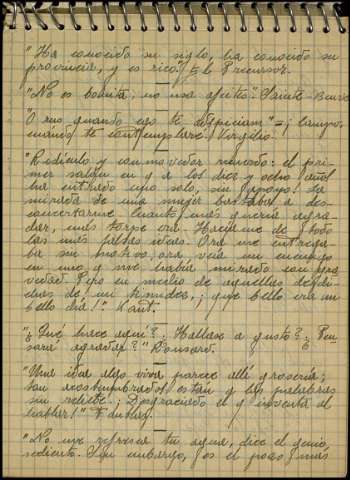 "Ha conocido su siglo, ha conocido su
provincia, y es rico." El Precursor.
"No es bonita; no usa afeites." Sainte-Beuve
"O rus quando ego te aspiciam" = ¡Campo,
cuando te contemplaré! Virgilio.
"Ridículo y conmovedor recuerdo: el pri-
mer salón en q a los diez y ocho años
ha entrado uno solo, sin apoyo! La
mirada de una mujer bastaba a des-
concertarme. Cuanto más quería agra-
dar, más torpe era. Hacíame de todo
las más falsas ideas. Ora me entrega-
ba sin motivo, ora veía un enemigo
en uno q me había mirado con gra-
vedad. Pero en medio de aquellas desdi-
chas de mi timidez, ¡que bello era un
bello día!" Kant.
"¿Qué hace aquí? ¿Hállase a gusto? ¿Pen-
sará agradar?" Ronsard.
"Una idea algo viva parece allí grosería;
tan acostumbrados están a las palabras
sin relieve. ¡Desgraciado el q inventa al
hablar!"
"No me refresca tu agua, dice el genio
sediento. Sin embargo, es el pozo más